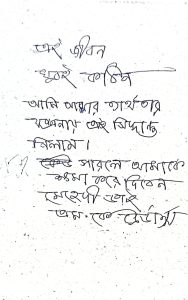 এই জীবন
খুবই কঠিন
আমি আমার ব্যর্থতার
যন্ত্রনায় এই সিদ্ধান্ত
নিলাম।
পারলে আমাকে
ক্ষমা করে দিবেন
মেহেদী ভাই
এম. কে